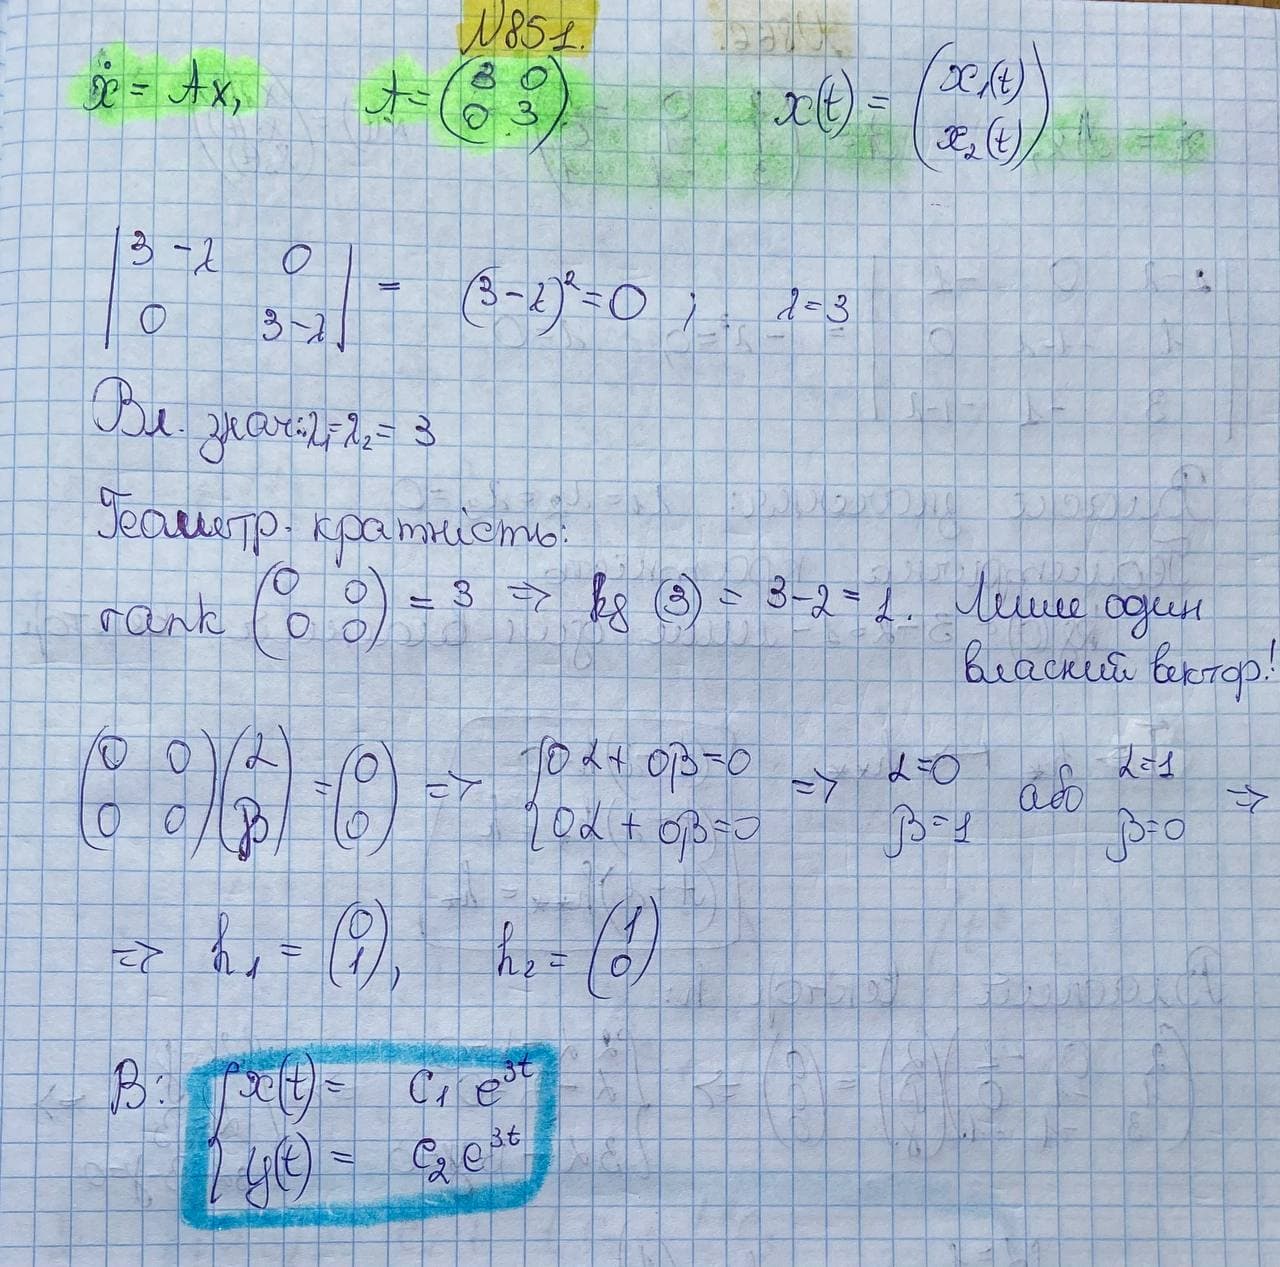 №851.
ẋ = Ax, A = (3 0; 0 3). x(t) = (x₁(t); x₂(t))
|3-λ 0; 0 3-λ| = (3-λ)² = 0 ; λ = 3
Вл. знач.: λ₁=λ₂ = 3
Геометр. кратність:
rank (0 0; 0 0) = 3 => kg (3) = 3-2 = 1. Лише один
власний вектор!
(0 0; 0 0)(α; β) = (0; 0) => {0α + 0β = 0; 0α + 0β = 0 => α=0 β=1 або α=1 β=0 =>
=> h₁ = (0; 1), h₂ = (1; 0)
В: {x(t) = C₁ e^{3t}
y(t) = C₂ e^{3t}